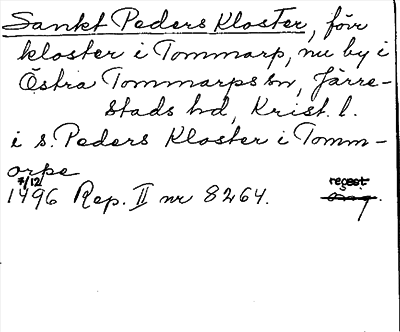 Sankt Peders Kloster, förr
kloster i Tommarp, nu by i
Östra Tommarps sn, Järre-
stads hd, Krist. l.
i s. Peders Kloster i Tomm-
arpe
7/12
1496 Rep. II nr 8264.
regest